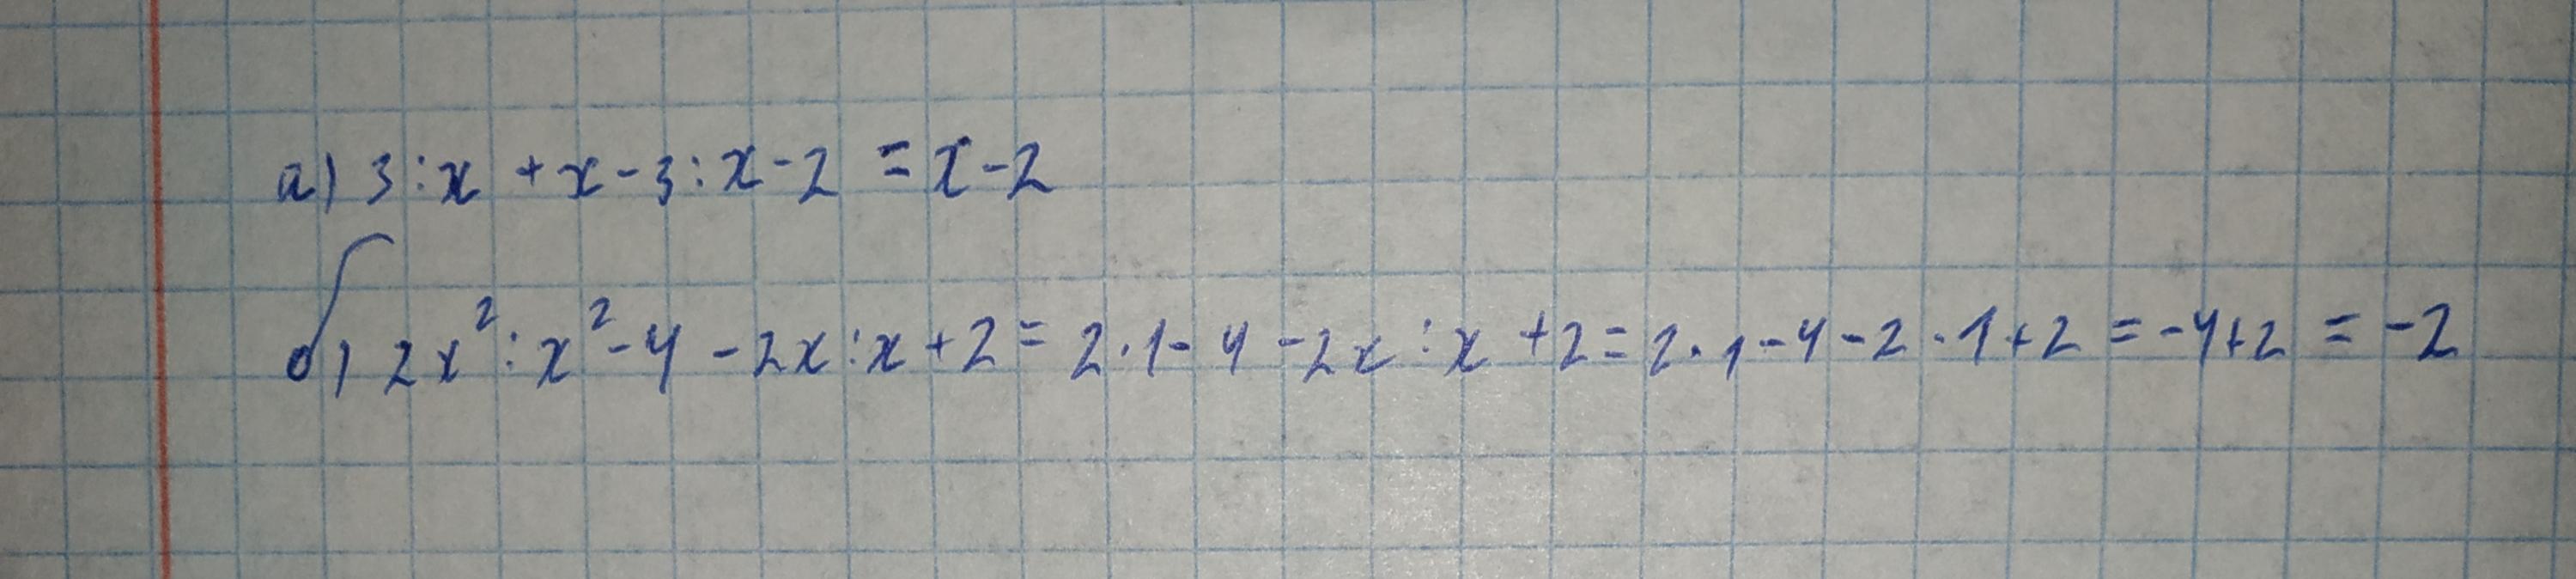 а) 3:x + x - 3 : x - 2 = x - 2
б) 2x² : x² - 4 - 2x : x + 2 = 2 · 1 - 4 - 2x : x + 2 = 2 · 1 - 4 - 2 · 1 + 2 = -4+2 = -2